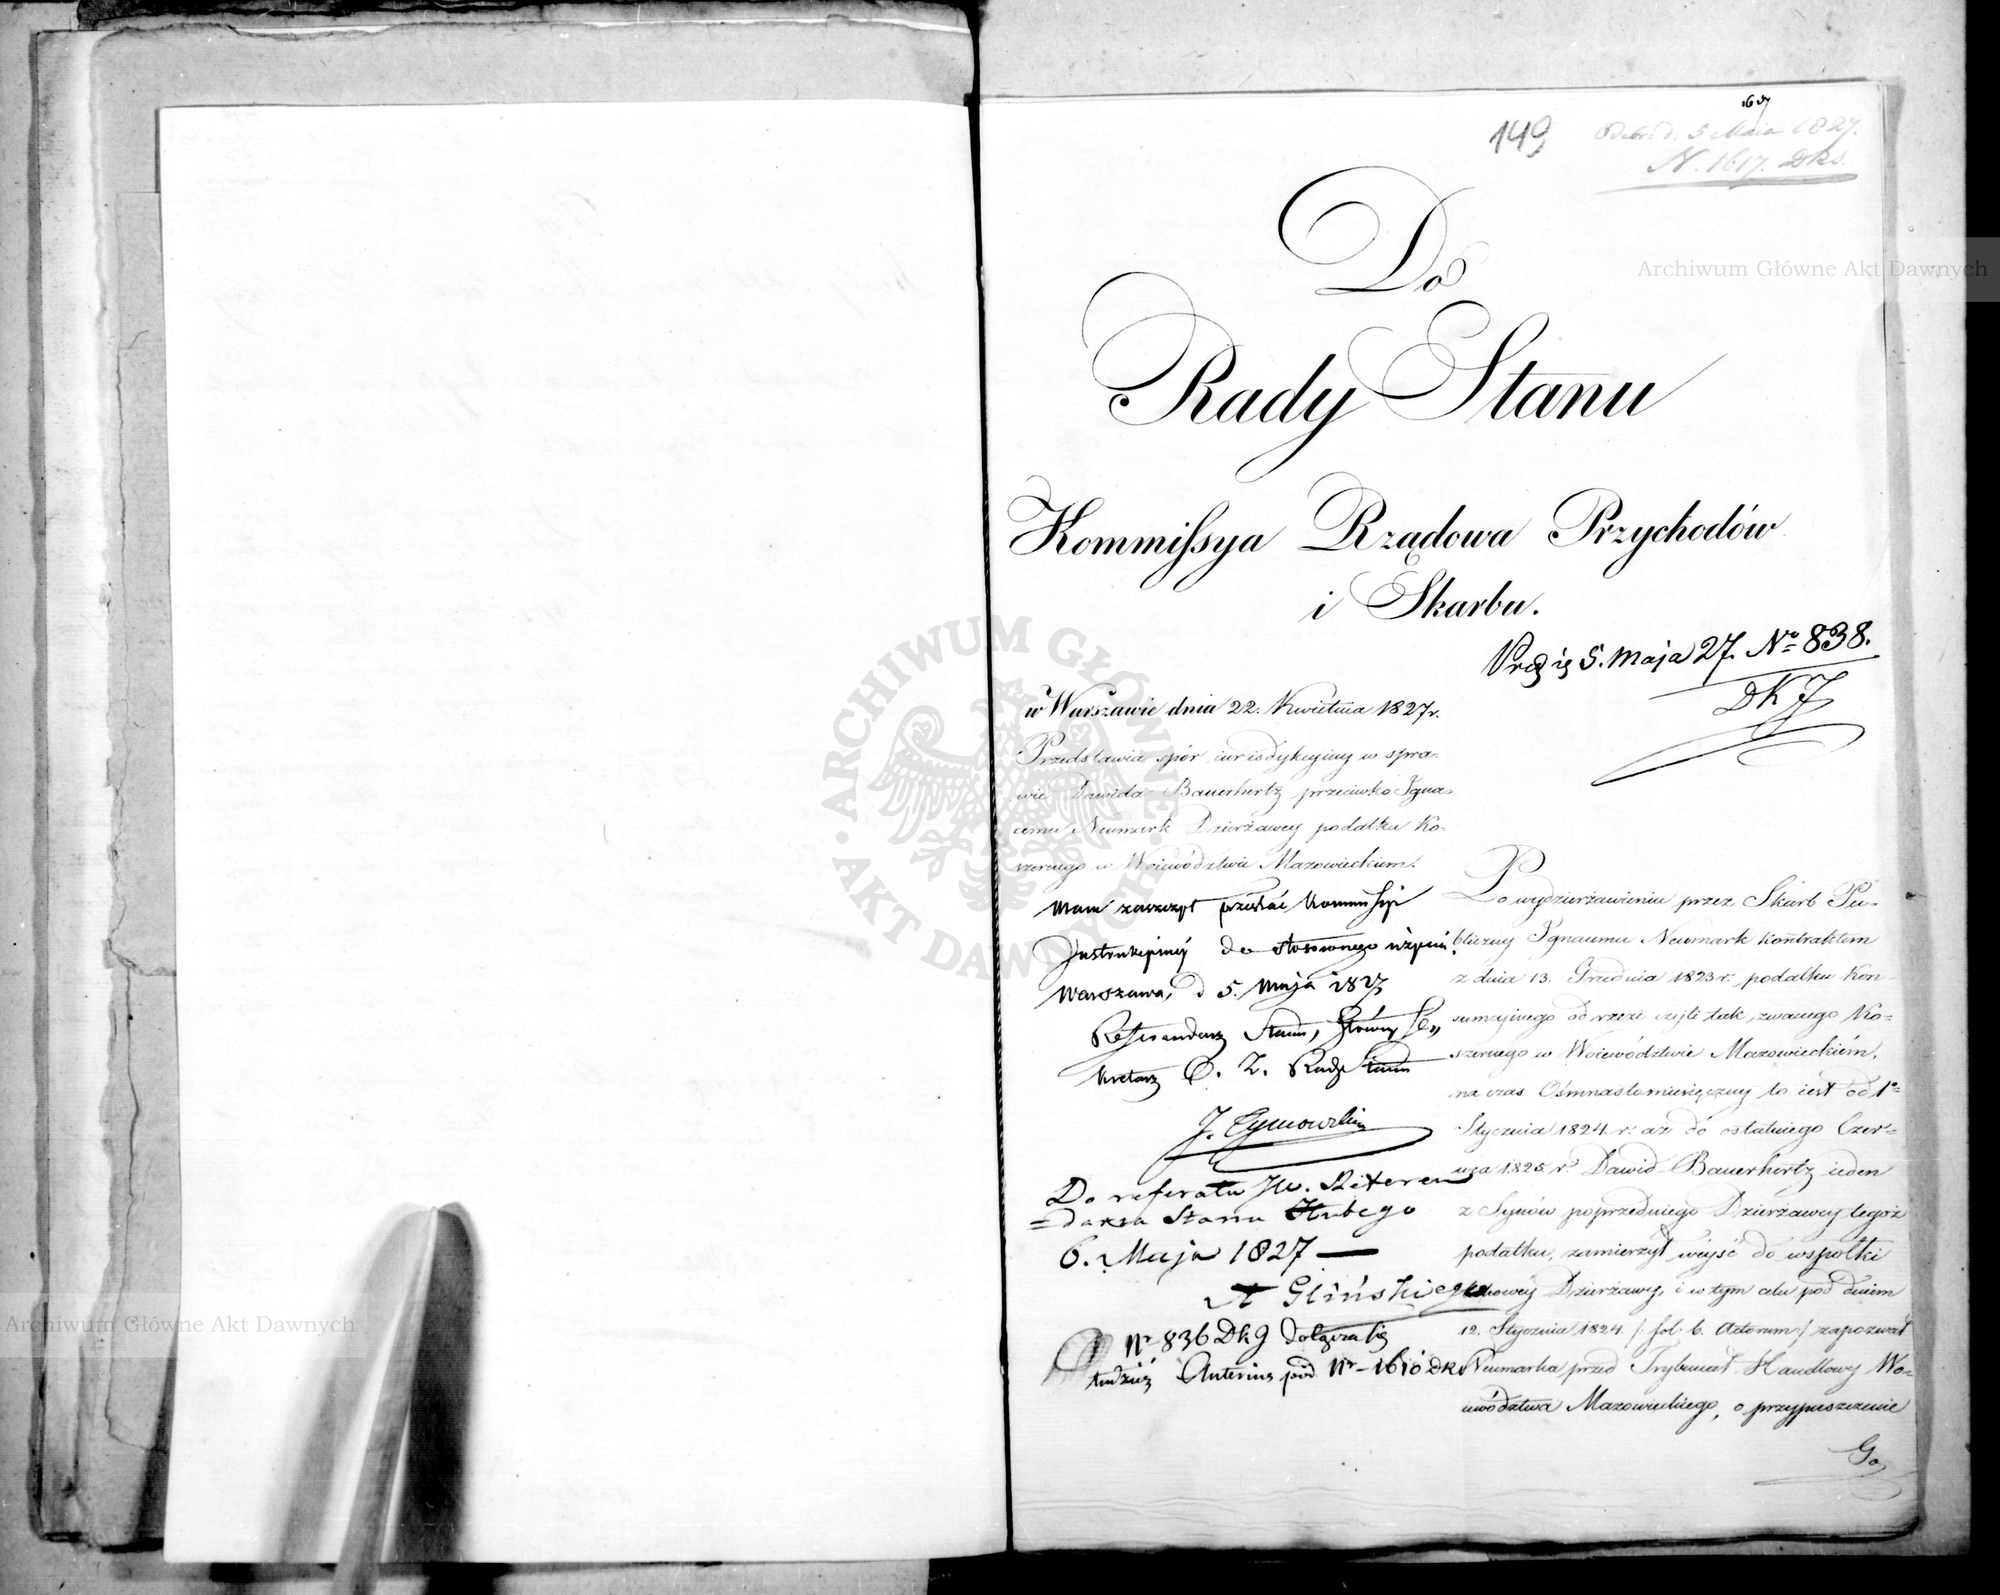 149
Odebr. d. 5 Maja 1827.
N. 1617. Dks.
Do
Rady Stanu
Kommissya Rządowa Przychodów
i Skarbu.
5. Maja 27. No 838.
DKJ
w Warszawie dnia 22. Kwietnia 1827 r.
Przedstawia spór iurisdykcyiny w spra-
wie Dawida Bauerhertz przeciwko Igna-
cemu Neumark Dzierżawcy podatku Ko-
szernego w Woiewództwie Mazowieckiem.
Mam zaszczyt przesłać Kommissyi
Instrukcyiney do stosownego użycia.
Warszawa, d 5. Maja 1827
Referendarz Stanu, Główny Se„
kretarz Rady Stanu
J. Tymowski
Do referatu JW. Referen
=darza Stanu Hubego
6. Maja 1827 —
A Gliński
Nr 836 Dkg dołącza się
tudzież Anterius pod Nr 1610 Dks
Po wydzierżawieniu przez Skarb Pu-
bliczny Ignacemu Neumark kontraktem
z dnia 13. Grudnia 1823 r. podatku Kon-
sumcyinego od rzezi czyli tak zwanego Ko-
szernego w Woiewództwie Mazowieckiém,
na czas Ośmnastomiesięczny to iest od 1o
Stycznia 1824 r. aż do ostatniego Czer-
wca 1825 r. Dawid Bauerhertz ieden
z Synów poprzedniego Dzierżawcy tegoż
podatku, zamierzył weyść do wspołki
nowey Dzierżawy, i w tym celu pod dniem
12. Stycznia 1824 /: fol. 6. Actorum :/ zapozwał
Neumarka przed Trybunał Handlowy Wo-
iewództwa Mazowieckiego, o przypuszczenie
Go
Archiwum Główne Akt Dawnych
Archiwum Główne Akt Dawnych
ARCHIWUM GŁÓWNE AKT DAWNYCH